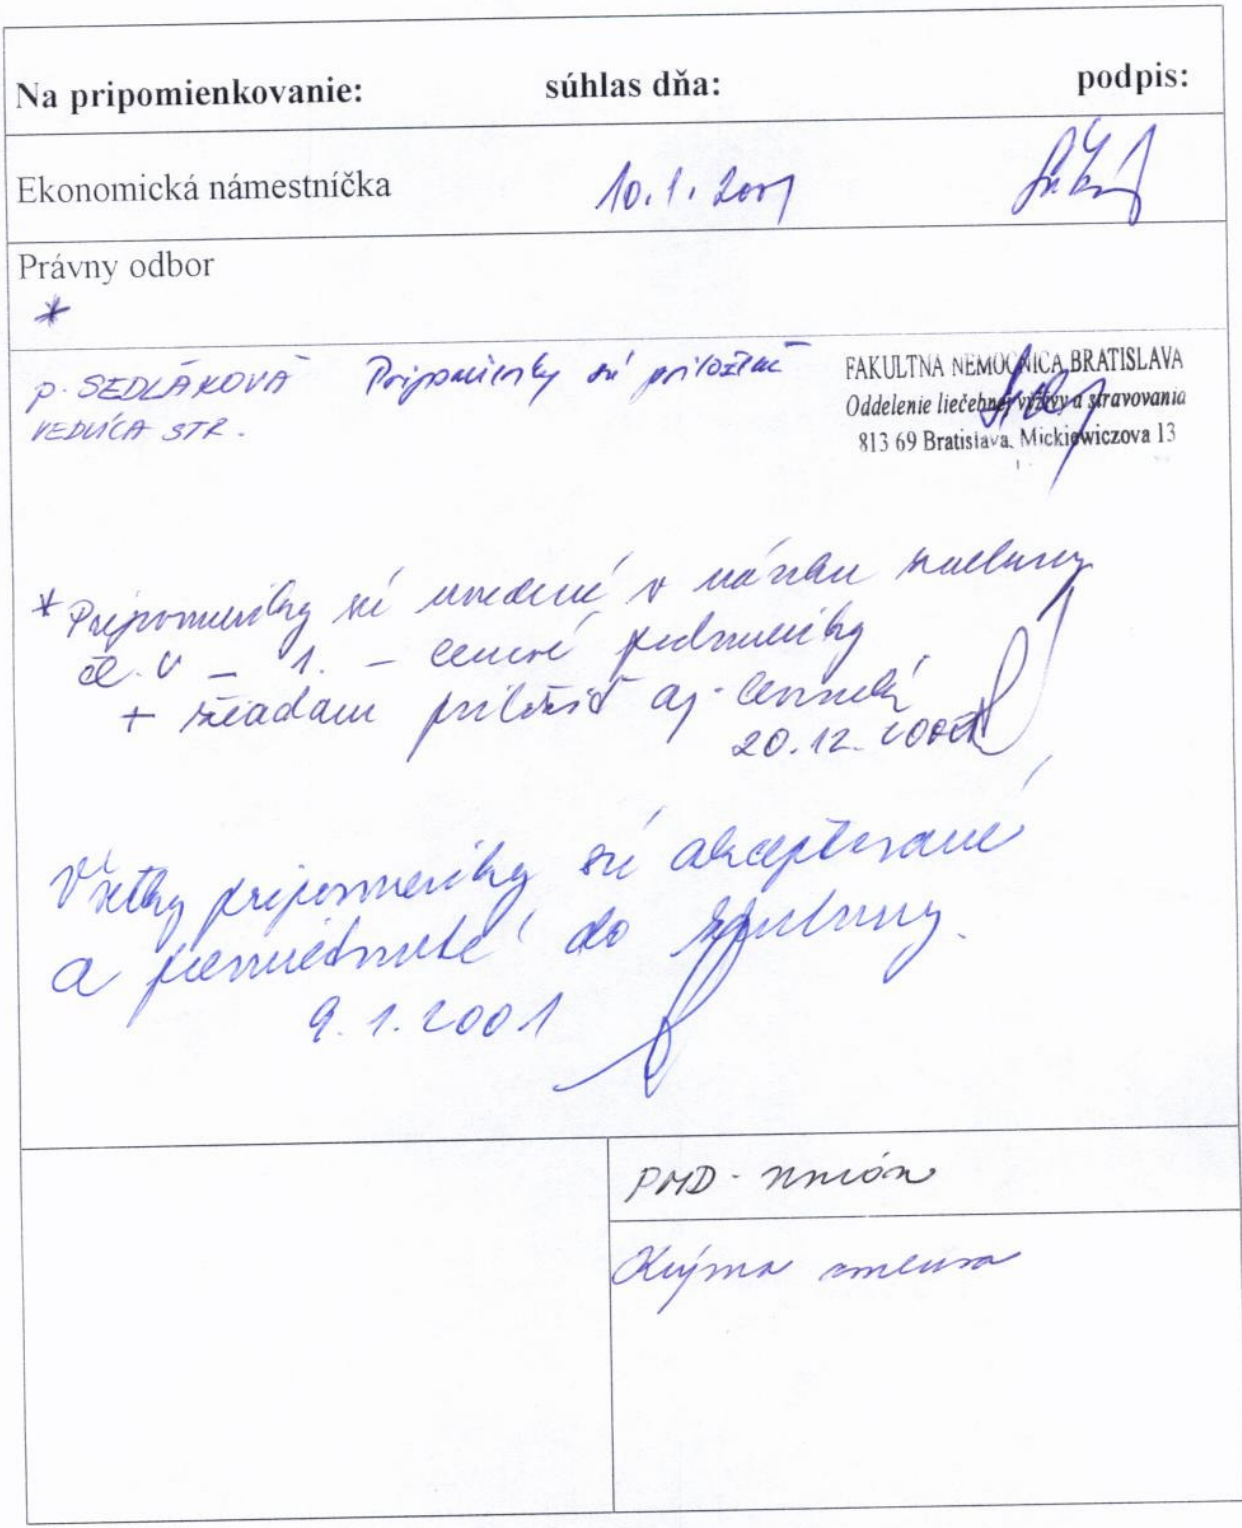 Na pripomienkovanie: súhlas dňa: podpis:
Ekonomická námestníčka 10.1.2001
Právny odbor
*
p. SEDLÁKOVÁ Pripomienky sú priložené
VEDÚCA STR.
FAKULTNA NEMOCNICA BRATISLAVA
Oddelenie liečebnej výživy a stravovania
813 69 Bratislava, Mickiewiczova 13
* Pripomienky sú uvedené v návrhu zmluvy
čl. V – 1. – cenové podmienky
+ žiadam priložiť aj cenník
20.12.2000
Všetky pripomienky sú akceptované
a premietnuté do zmluvy.
9.1.2001
PMD - Unión
Kúpna zmluva